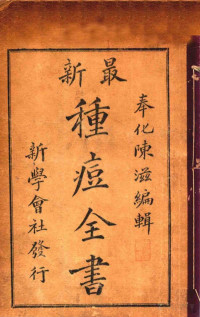 奉化陳滋編輯
最新
種痘全書
新學會社發行